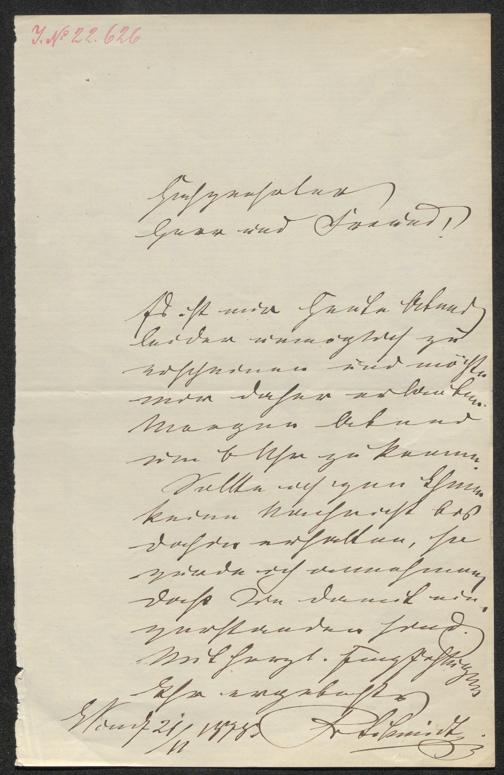 J. No 22.626
Hochgeehrter
Herr und Freund!
Es ist mir heute Abend
leider unmöglich zu
erscheinen und möchte
mir daher erlauben
Morgen Abend
um 6 Uhr zu kommen.
Sollte ich von Ihnen
keine Nachricht bis
dahin erhalten, so
würde ich annehmen
daß Sie damit ein-
verstanden sind.
Mit herzl. Empfehlungen
Ihr ergebenster
21/11 1878 Schmidt